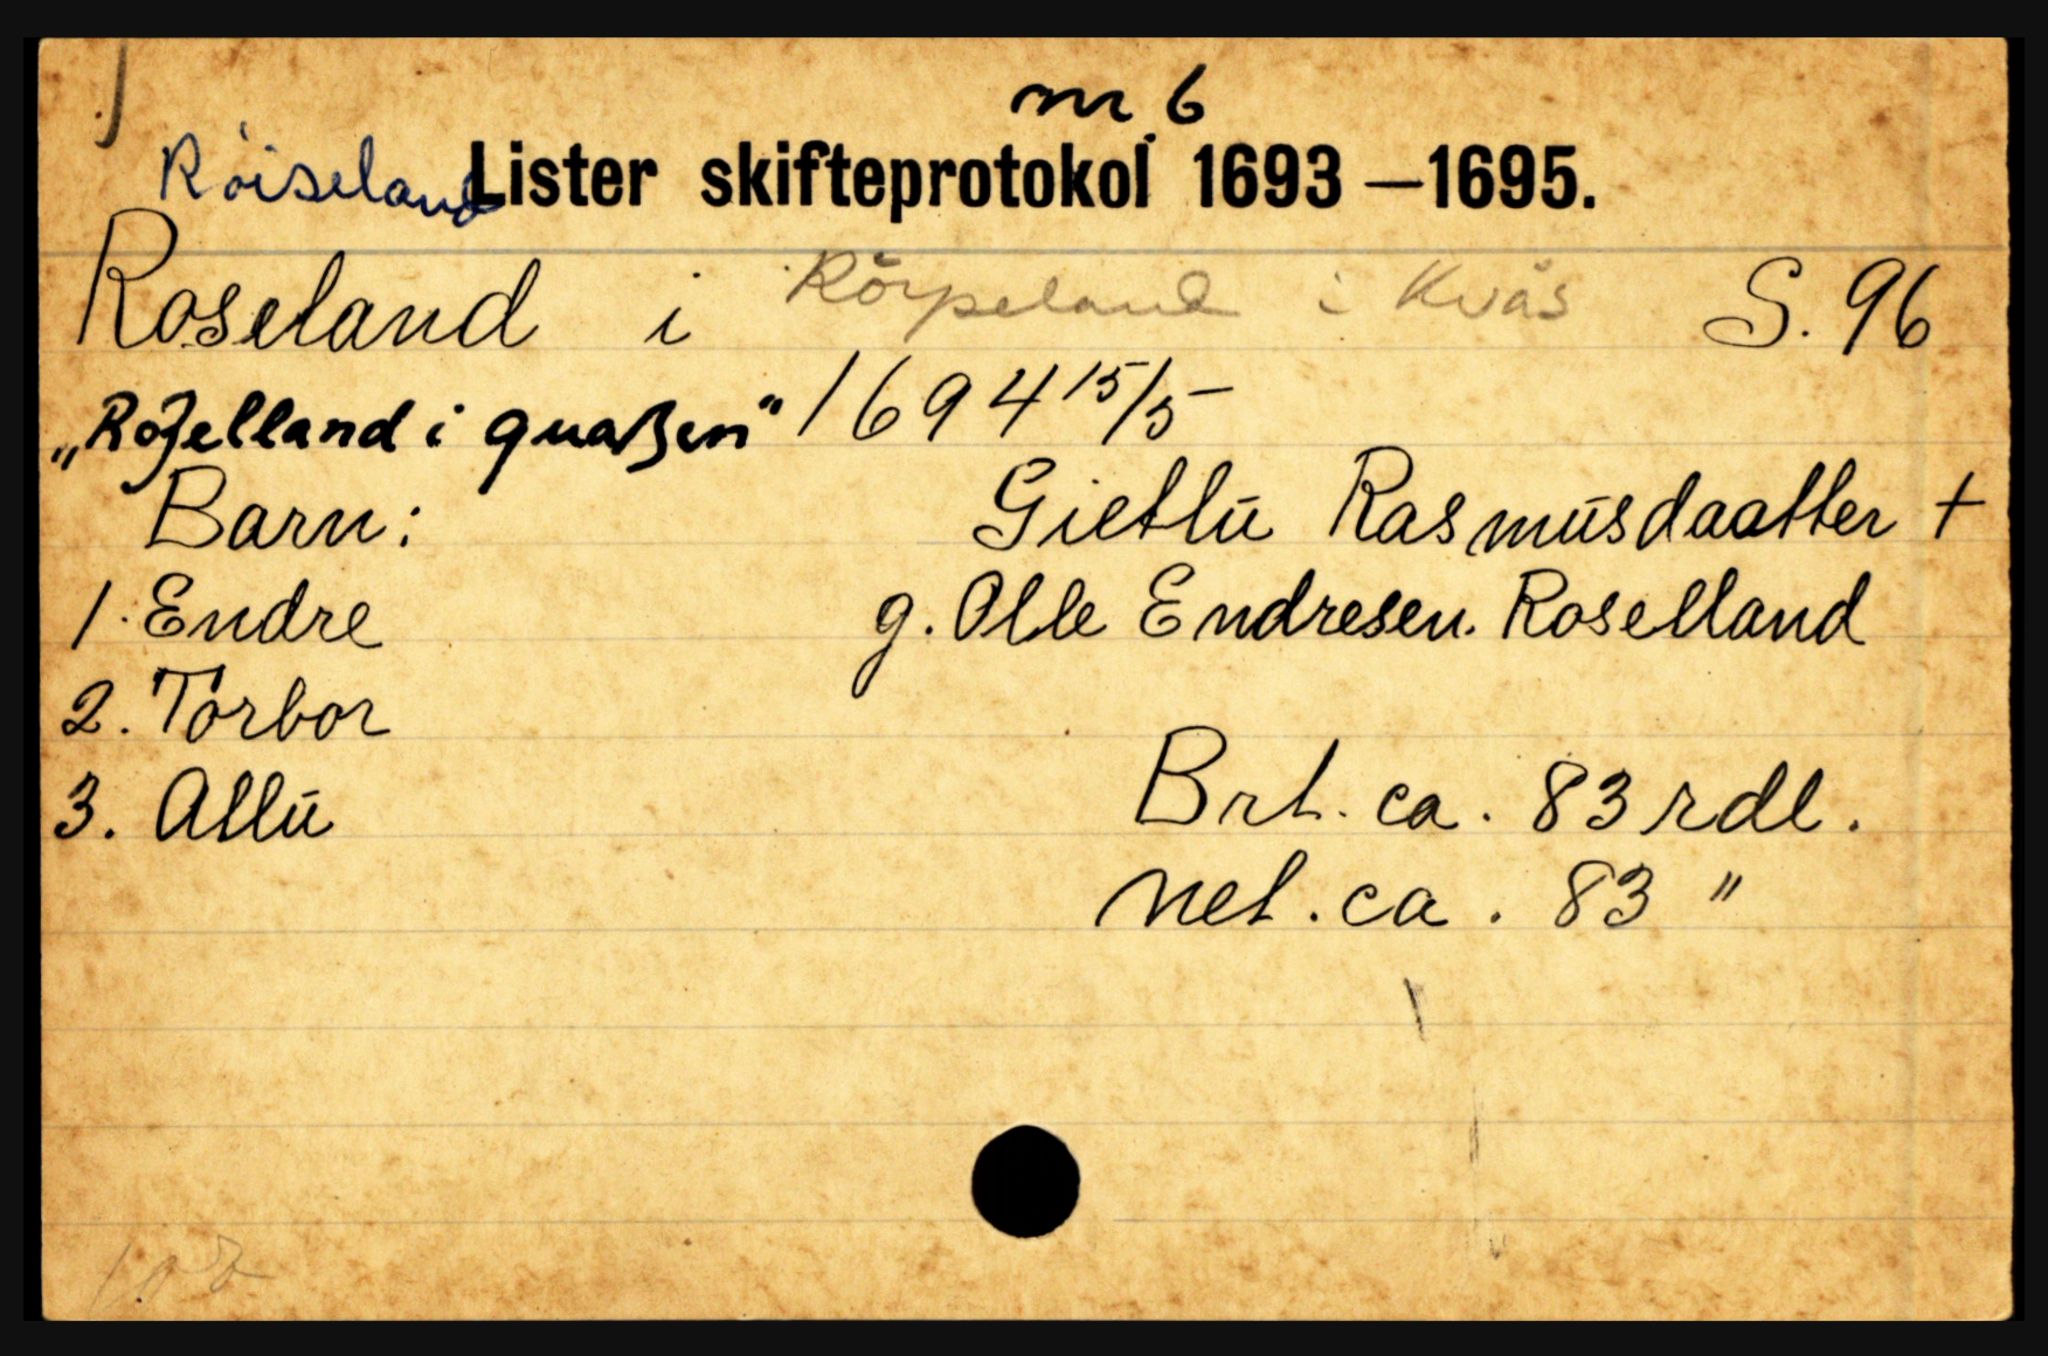 nr 6
Röiseland Lister skifteprotokol 1693 — 1695.
Roseland i Röyseland i Kvås S. 96
„Roßelland i quaßen" 1694 15/5
Barn: Gietlū Rasmūsdaatter +
1. Endre g. Olle Endresen Roselland
2. Torbor
3. Allū Brt. ca. 83 rdl.
net. ca. 83 "